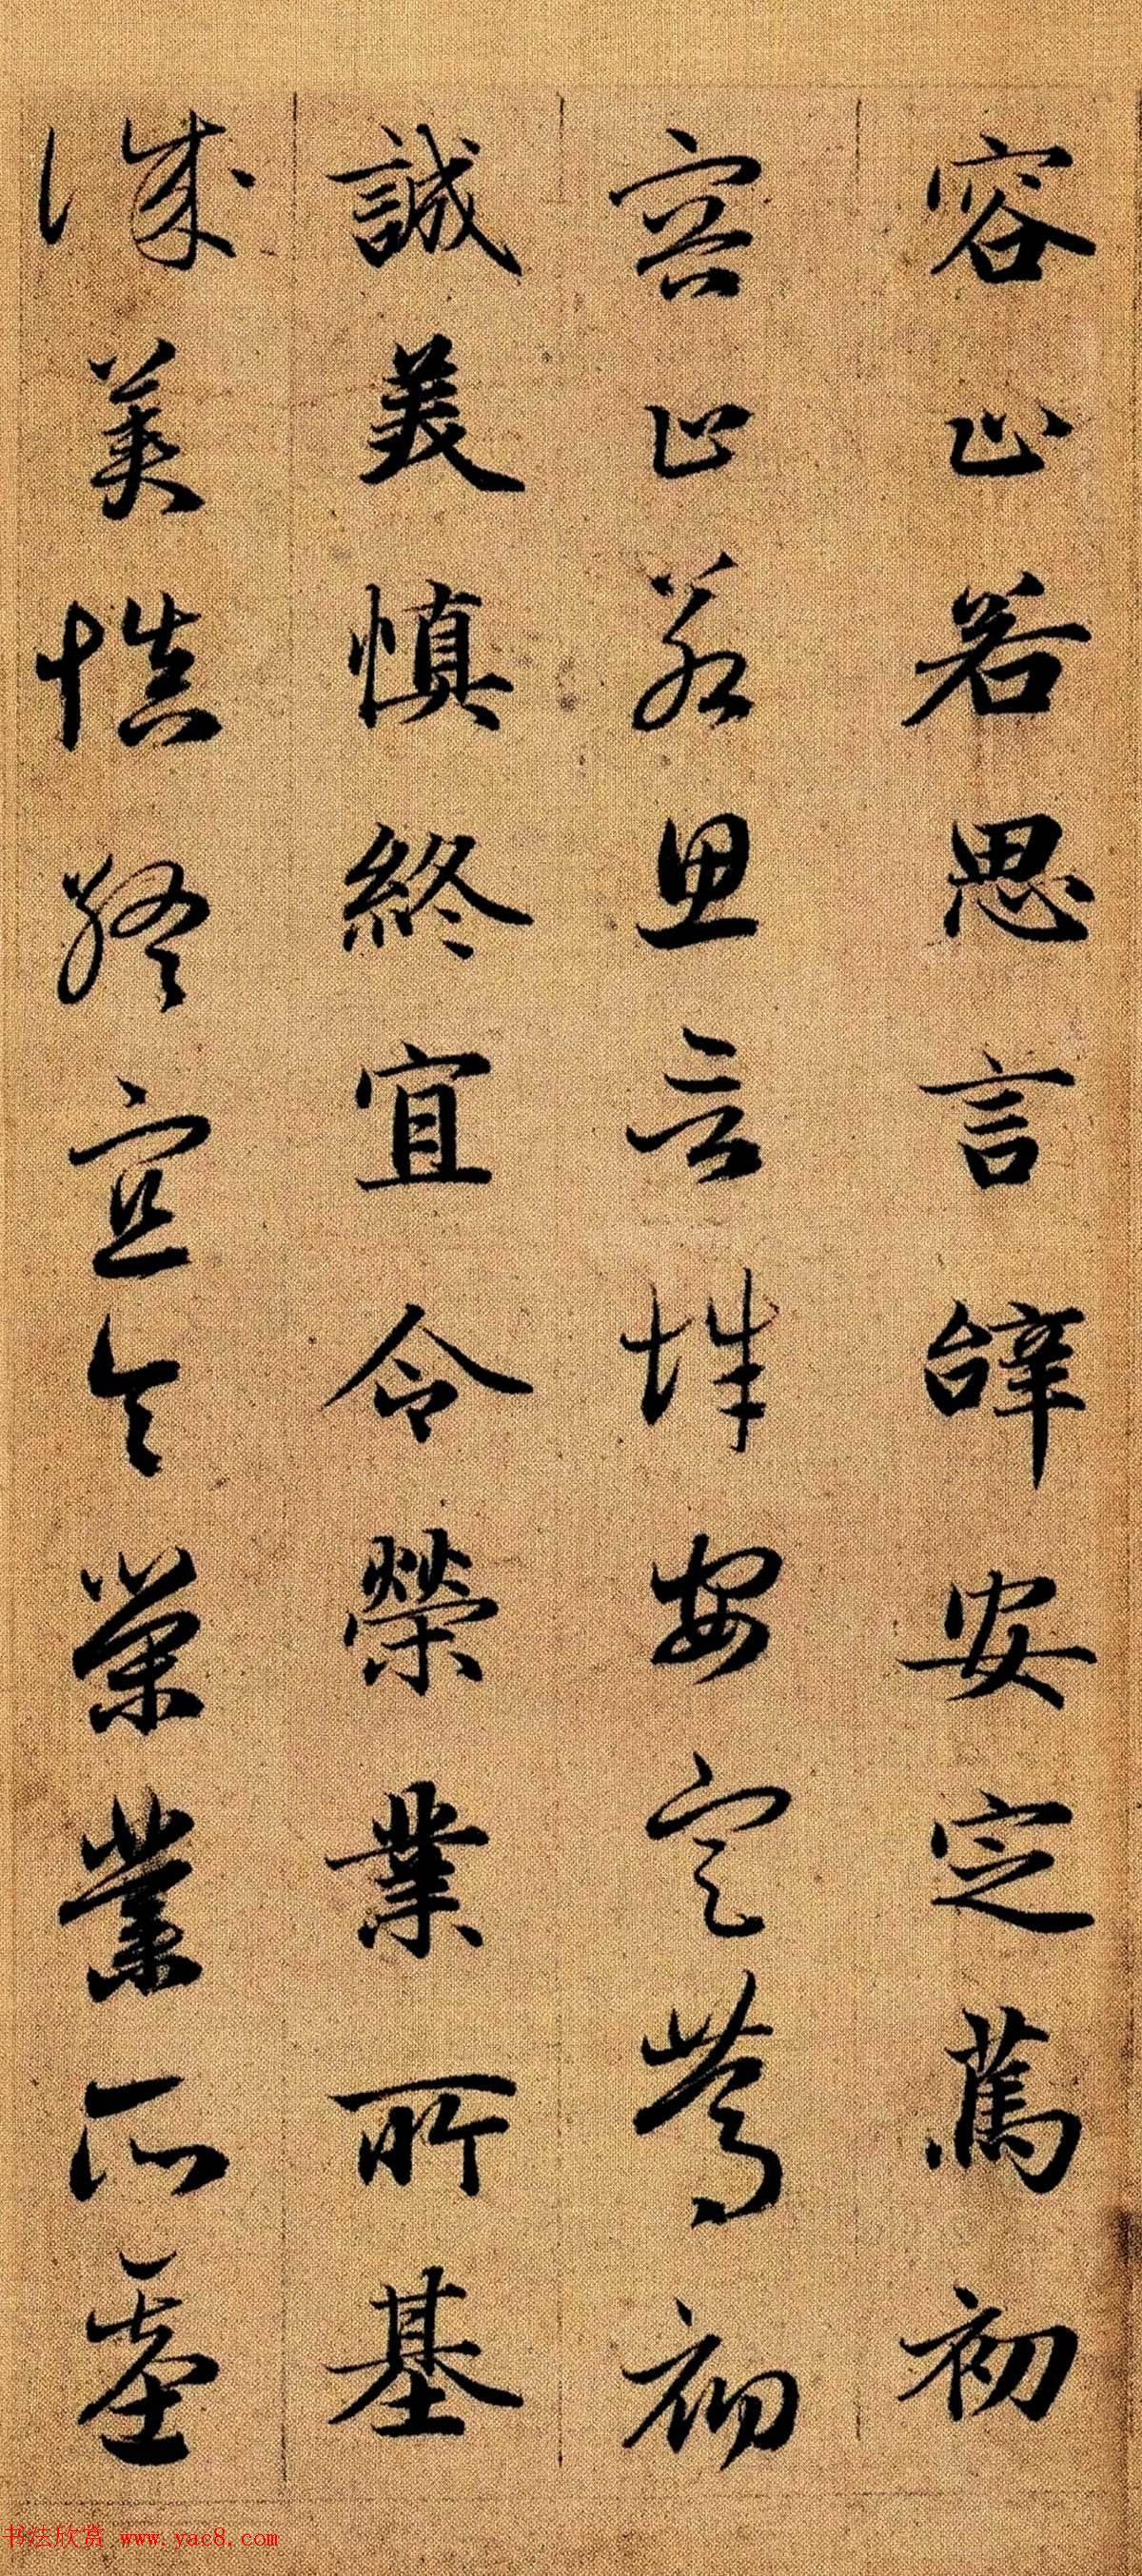 容止若思言辭安定篤初
容止若思言辭安定篤初
誠美慎終宜令榮業所基
誠美慎終宜令榮業所基
书法欣赏 www.yac8.com